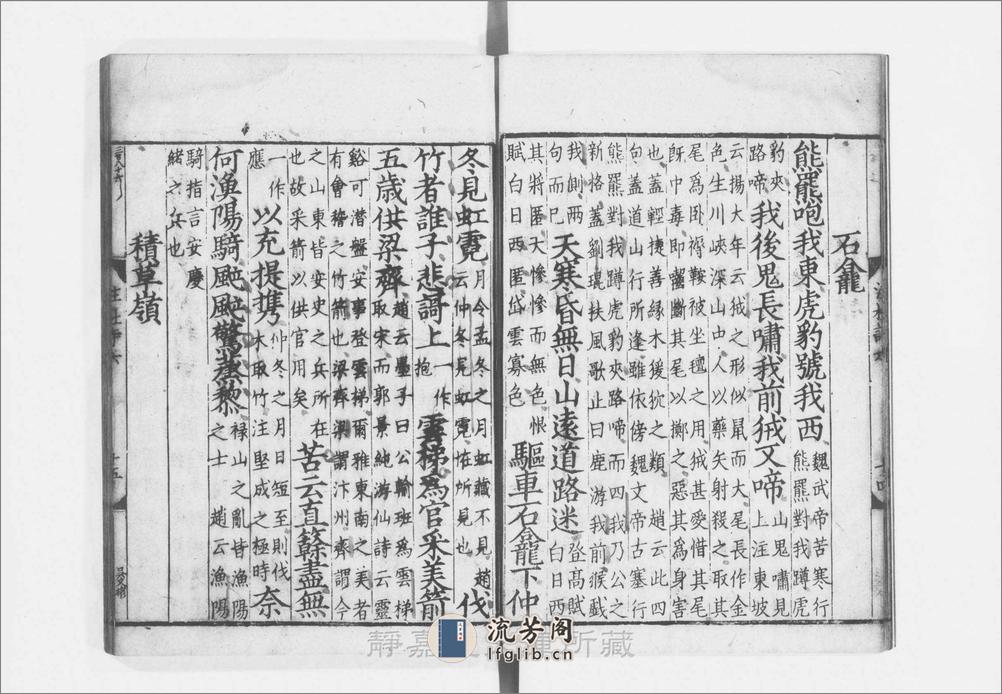 石龕
熊羆咆我東虎豹號我西魏武帝苦寒行熊羆對我蹲虎
豹夾路啼我後鬼長嘯我前狨又啼山鬼嘯見上注東坡
云揚大年云狨之形似鼠而大尾長作金色生川峽深山中人以藥矢射殺之取其
尾為卧褥鞍被坐氊之用狨甚愛惜其尾旣中毒即齧斷其尾以擲之惡其為身害
也蓋輕捷善緣木猨狖之類趙云此四句蓋道山行所逢雖依傍魏文帝古塞行
熊羆對我蹲虎豹夾路啼而四我乃公之新格蓋劉琨扶風歌止曰鹿游我前猴戲
我側兩句而已天寒昏無日山遠道路迷登高賦白日西
其將匿天慘慘而無色恨賦白日西匿岱雲寡色驅車石龕下仲
冬見虹霓月令孟冬之月虹藏不見趙云仲冬見虹霓恠所見也伐
竹者誰子悲謌上一作抱雲梯為官采美箭
五歲供梁齊趙云墨子曰公輸班為雲梯取宋而郭景純游仙詩云靈
谿可潛盤安事登雲梯爾雅東南之美者有會稽之竹箭也梁齊梁謂汴州齊謂今
之山東皆安史之兵所在也故采箭以供官用矣苦云直簳盡無
一作應以充提携仲冬之月日短至則伐木取竹注堅成之極時奈
何漁陽騎颯颯驚蒸黎祿山之亂皆漁陽之士趙云漁陽
騎指言安慶緒之兵也
積草嶺
靜嘉堂文庫所藏
流芳阁
lfglib.cn